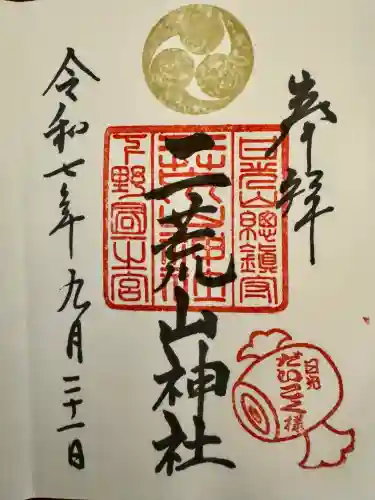 奉拝
日光山總鎮守
二荒山神社
下野國一之宮
日光
だいこく様
令和七年九月二十一日